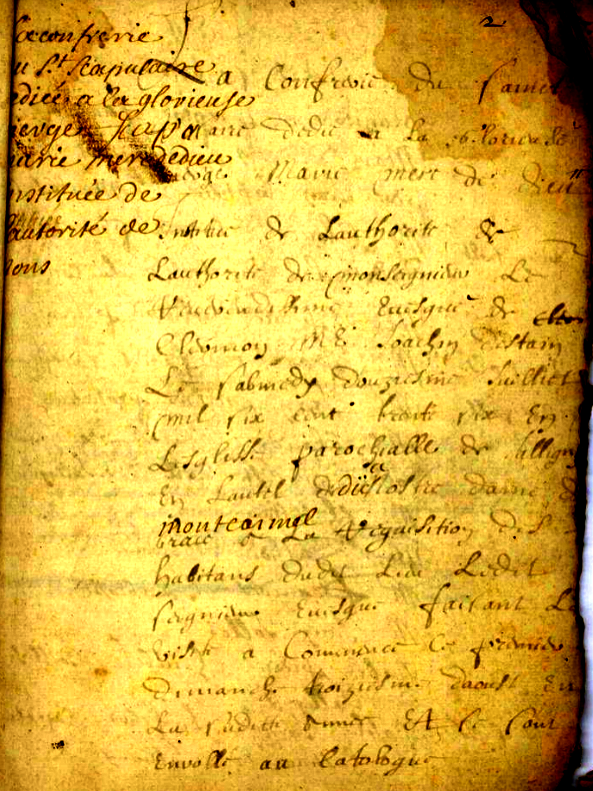 2
la confrerie
du St Scapulaire
ddiée a la glorieuse
vierge
marie mere dedieu
instituée de
l'autorité de
vous
La Confrerie du Sainct
Scapulaire dedie a La Glorieuse
Vierge Marie mere de dieu
Instituee de Lauthorite de
Lauthorite de monseigneur Le
Reverendissime Euesque de
Clermon Mre Joachin destain
Le sabmedy douziesme Juilliet
mil six cent trente six En
Lesglisse parochialle de billigny
En Lautel de nostre dame de
montcimel
grace a La Requisition des
habitans dudit Lieu Ledit
seigneur Euesque faisant La
visite a Commence Ce premier
dimanche troiziesme daoust En
La sudicte annee Et Ce sont
Enrolle au Catologue